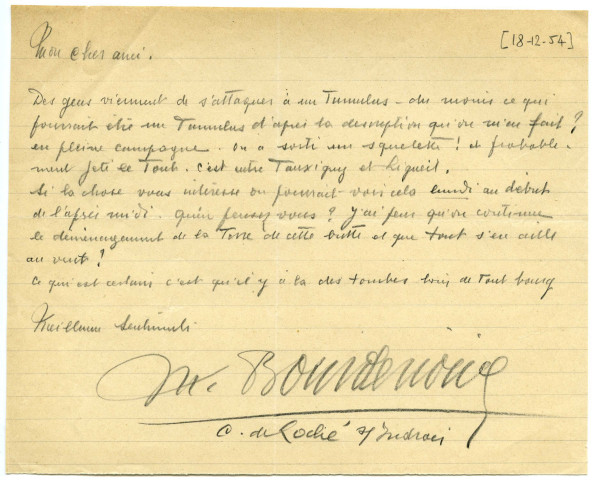 [18-12-54]
Mon cher ami.
Des gens viennent de s'attaquer à un Tumulus - du moins ce qui
pourrait être un Tumulus d'après la description qu'on m'en fait ?
en pleine campagne. on a sorti un squelette ! et probable-
ment jeté le Tout. c'est entre Tauxigny et Ligueil.
Si la chose vous intéresse on pourrait voir cela lundi au début
de l'après midi. Qu'en pensez vous ? j'ai peur qu'on continue
le déménagement de la Terre de cette butte et que tout s'en aille
au vent !
Ce qui est certain c'est qu'il y a là des tombes loin de Tout bourg
Meilleurs Sentiments
M. Bourdenoing
C. de Loché s/ Indrois